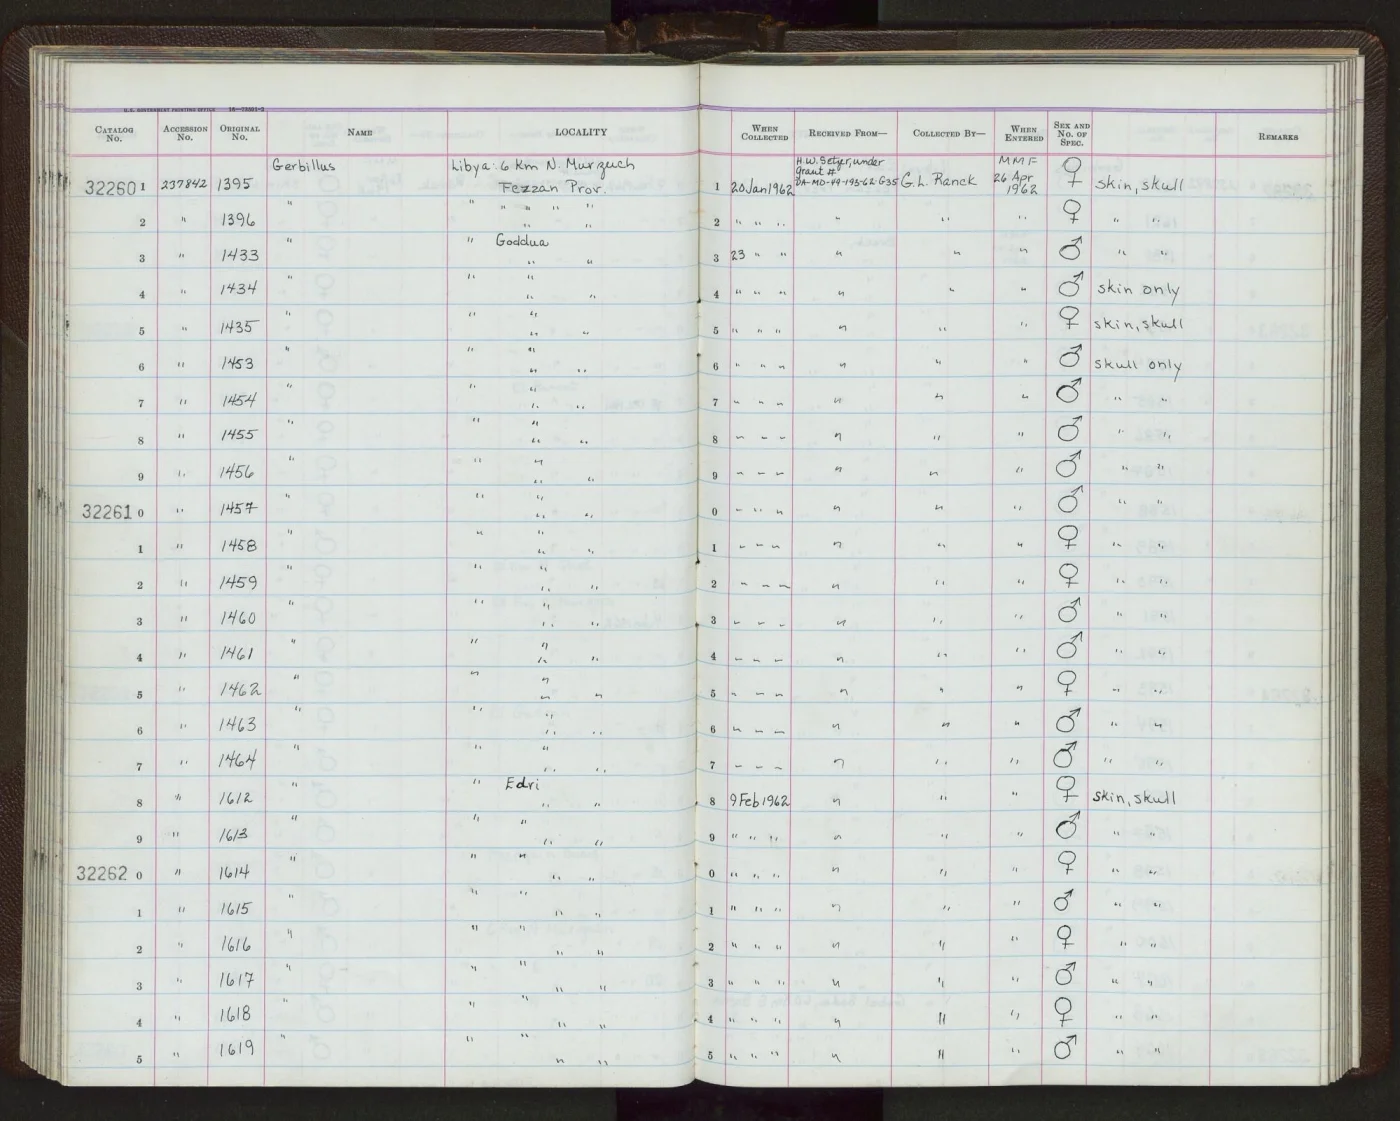 U.S. GOVERNMENT PRINTING OFFICE 16—72501-2
CATALOG No. ACCESSION No. ORIGINAL No. NAME LOCALITY WHEN COLLECTED RECEIVED FROM— COLLECTED BY— WHEN ENTERED SEX AND No. OF SPEC. REMARKS
Gerbillus Libya: 6 Km N. Murzuch H.W. Setzer, under grant # MMF
32260 1 237842 1395 Fezzan Prov. 1 20 Jan 1962 DA-MD-49-193-62-G35 G.L. Ranck 26 Apr 1962 ♀ skin, skull
2 " 1396 " " " " " " " " 2 " " " " " " ♀ " "
3 " 1433 " " Goddua " " 3 23 " " " " " ♂ " "
4 " 1434 " " " " " 4 " " " " " " ♂ skin only
5 " 1435 " " " " " 5 " " " " " " ♀ skin, skull
6 " 1453 " " " " " 6 " " " " " " ♂ skull only
7 " 1454 " " " " " 7 " " " " " " ♂ " "
8 " 1455 " " " " " 8 " " " " " " ♂ " "
9 " 1456 " " " " " 9 " " " " " " ♂ " "
32261 0 " 1457 " " " " " 0 " " " " " " ♂ " "
1 " 1458 " " " " " 1 " " " " " " ♀ " "
2 " 1459 " " " " " 2 " " " " " " ♀ " "
3 " 1460 " " " " " 3 " " " " " " ♂ " "
4 " 1461 " " " " " 4 " " " " " " ♂ " "
5 " 1462 " " " " " 5 " " " " " " ♀ " "
6 " 1463 " " " " " 6 " " " " " " ♂ " "
7 " 1464 " " " " " 7 " " " " " " ♂ " "
8 " 1612 " " Edri " " 8 9 Feb 1962 " " " ♀ skin, skull
9 " 1613 " " " " " 9 " " " " " " ♂ " "
32262 0 " 1614 " " " " " 0 " " " " " " ♀ " "
1 " 1615 " " " " " 1 " " " " " " ♂ " "
2 " 1616 " " " " " 2 " " " " " " ♀ " "
3 " 1617 " " " " " 3 " " " " " " ♂ " "
4 " 1618 " " " " " 4 " " " " " " ♀ " "
5 " 1619 " " " " " 5 " " " " " " ♂ " "